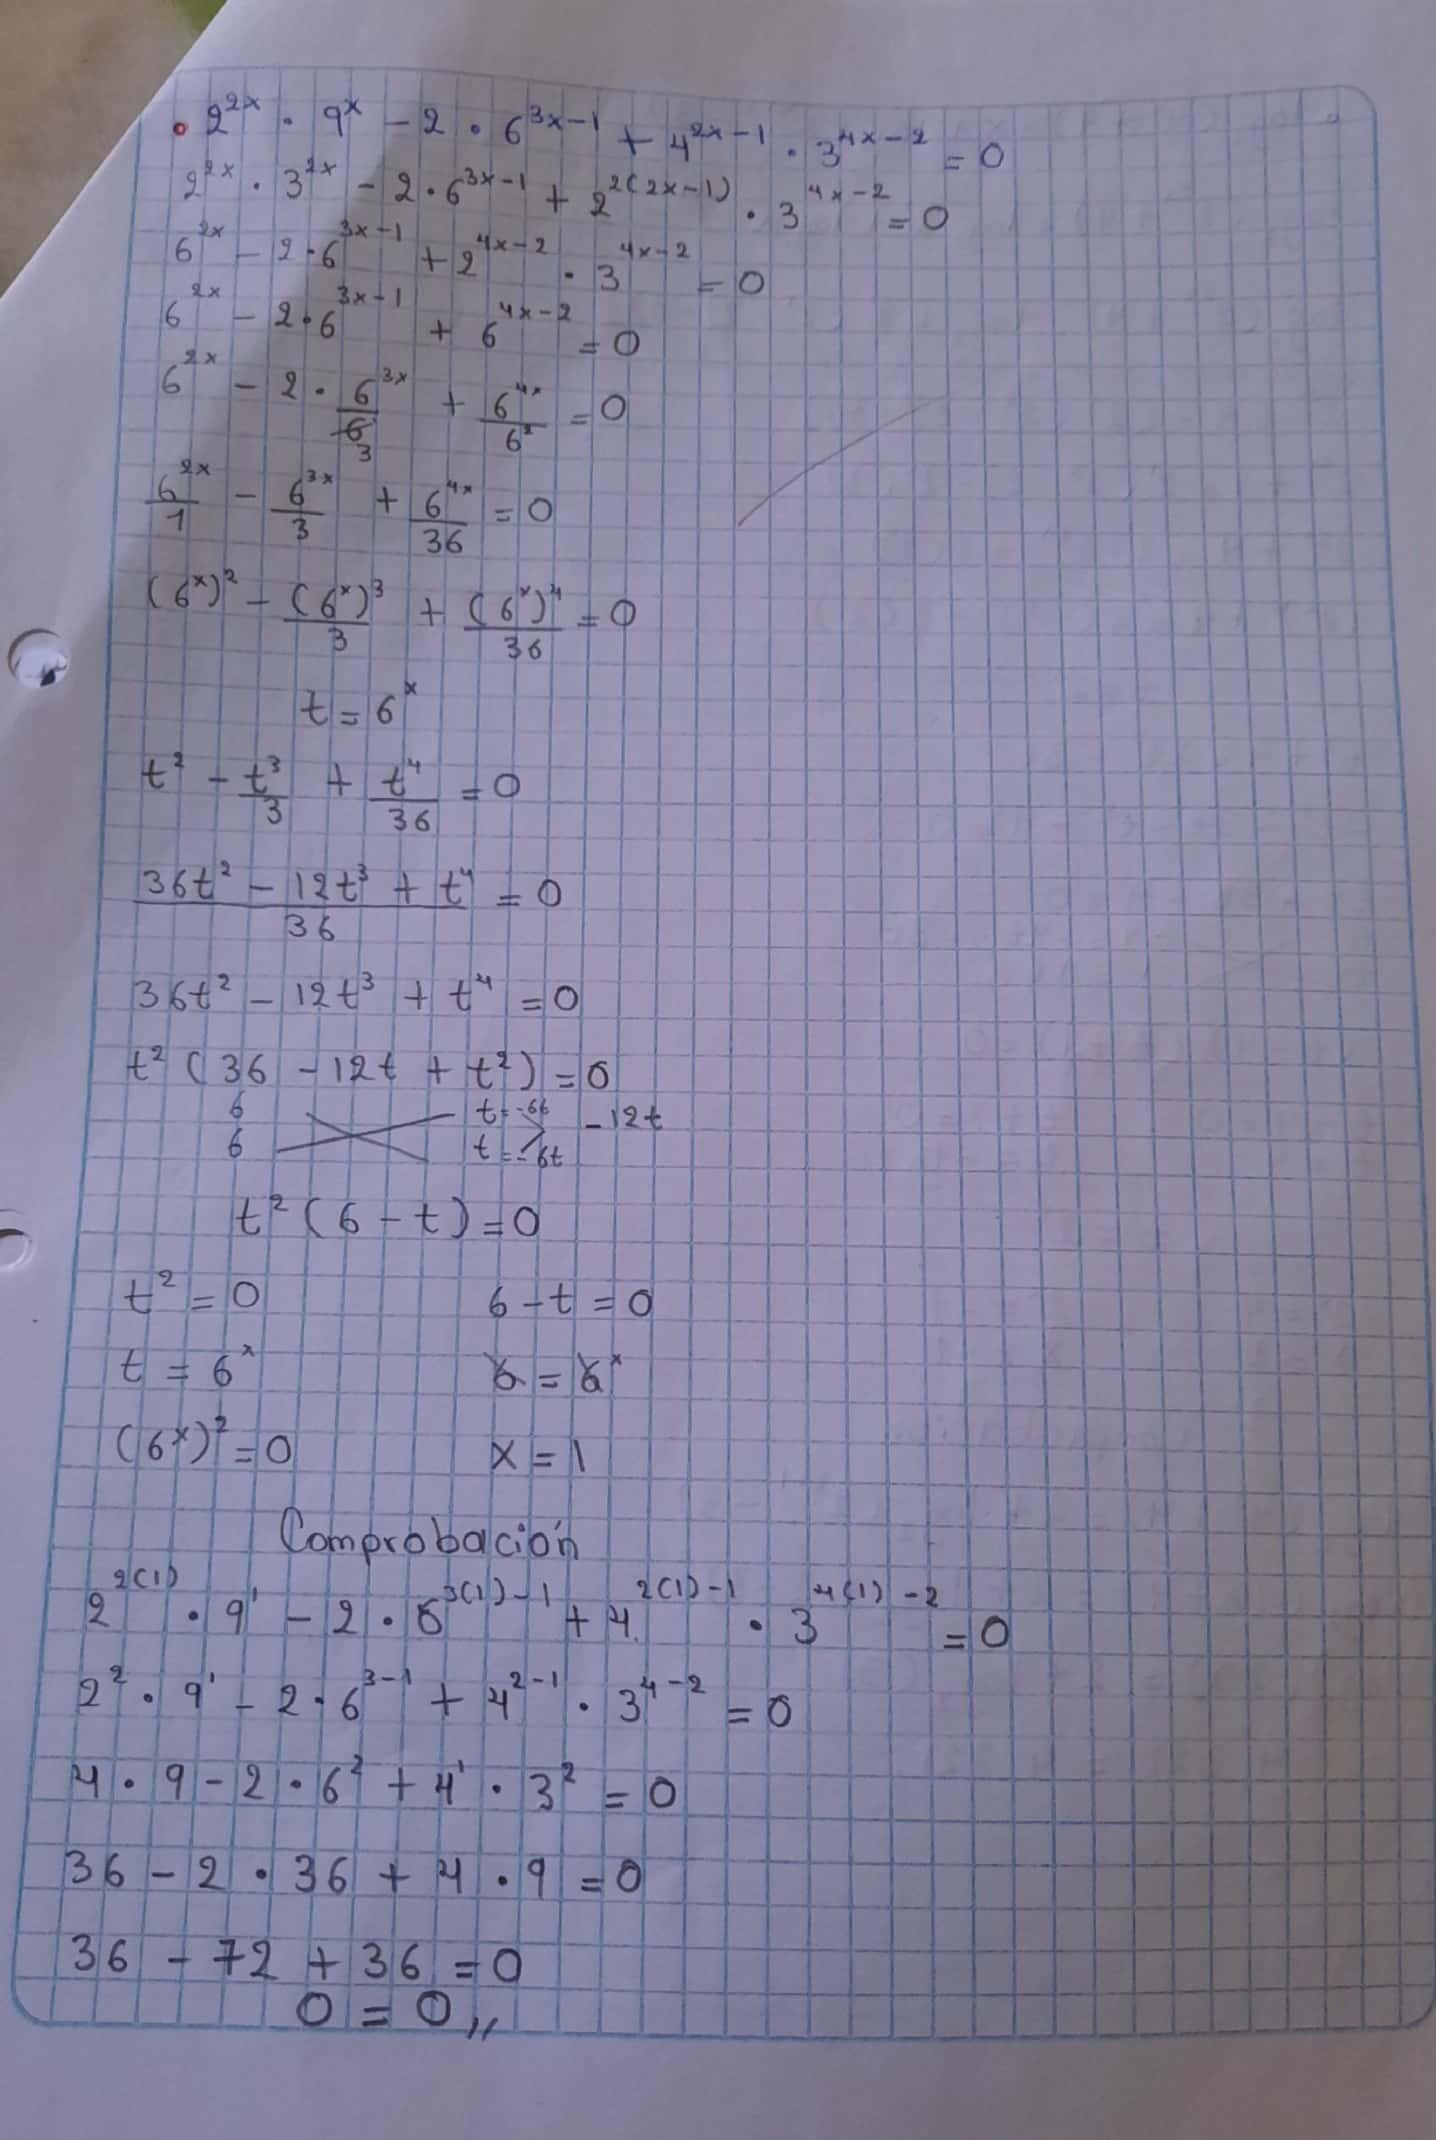 • 2^2x · 9^x - 2 · 6^3x-1 + 4^2x-1 · 3^4x-2 = 0
2^2x · 3^2x - 2 · 6^3x-1 + 2^2(2x-1) · 3^4x-2 = 0
6^2x - 2 · 6^3x-1 + 2^4x-2 · 3^4x-2 = 0
6^2x - 2 · 6^3x-1 + 6^4x-2 = 0
6^2x - 2 · 6^3x/6 + 6^4x/6^2 = 0
3
6^2x/1 - 6^3x/3 + 6^4x/36 = 0
(6^x)^2 - (6^x)^3/3 + (6^x)^4/36 = 0
t = 6^x
t^2 - t^3/3 + t^4/36 = 0
36t^2 - 12t^3 + t^4/36 = 0
36t^2 - 12t^3 + t^4 = 0
t^2 (36 - 12t + t^2) = 0
6 t = -6t - 12t
6 t = -6t
t^2 (6 - t) = 0
t^2 = 0 6 - t = 0
t = 6^x 6 = 6^x
(6^x)^2 = 0 x = 1
Comprobación
2^2(1) · 9^1 - 2 · 6^3(1)-1 + 4^2(1)-1 · 3^4(1)-2 = 0
2^2 · 9^1 - 2 · 6^3-1 + 4^2-1 · 3^4-2 = 0
4 · 9 - 2 · 6^2 + 4^1 · 3^2 = 0
36 - 2 · 36 + 4 · 9 = 0
36 - 72 + 36 = 0
0 = 0 ,,